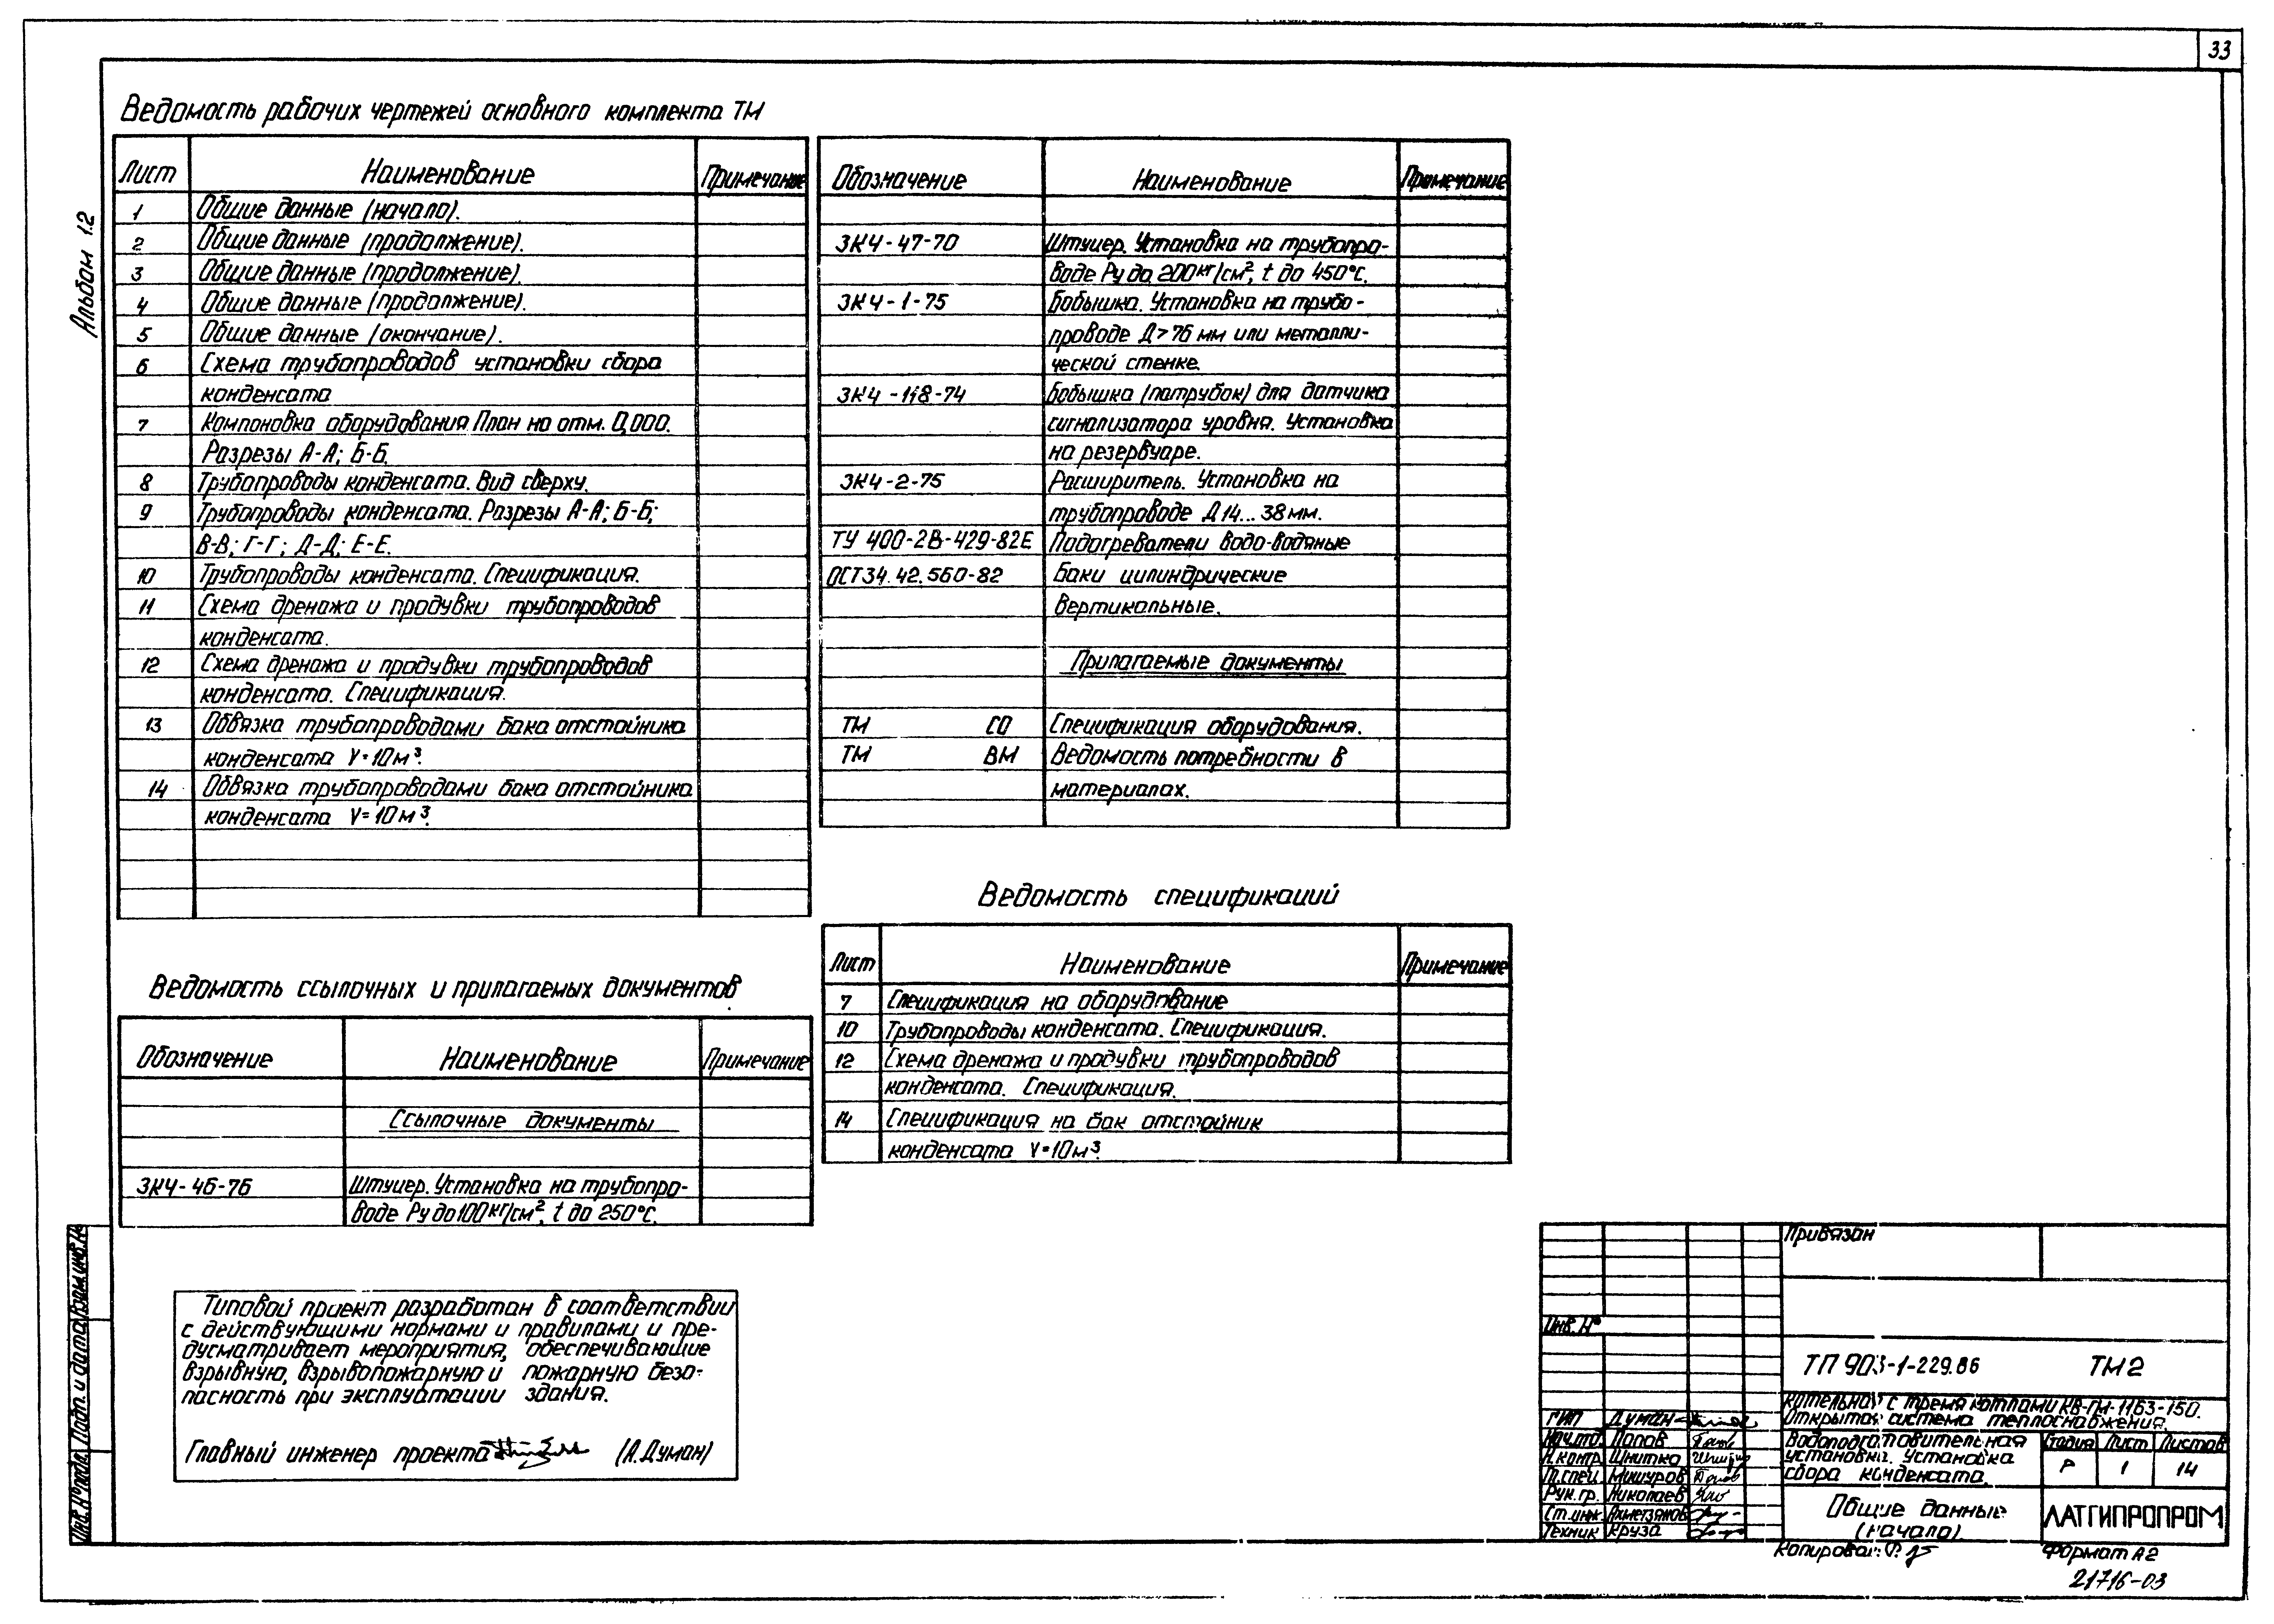 33
Альбом 1.2
Ведомость рабочих чертежей основного комплекта ТМ
Лист Наименование Примечание
1 Общие данные (начало).
2 Общие данные (продолжение).
3 Общие данные (продолжение).
4 Общие данные (продолжение).
5 Общие данные (окончание).
6 Схема трубопроводов установки сбора
конденсата
7 Компоновка оборудования План на отм. 0,000.
Разрезы А-А; Б-Б.
8 Трубопроводы конденсата. Вид сверху.
9 Трубопроводы конденсата. Разрезы А-А; Б-Б;
В-В; Г-Г; Д-Д; Е-Е.
10 Трубопроводы конденсата. Спецификация.
11 Схема дренажа и продувки трубопроводов
конденсата.
12 Схема дренажа и продувки трубопроводов
конденсата. Спецификация.
13 Обвязка трубопроводами бака отстойника
конденсата V=10м³.
14 Обвязка трубопроводами бака отстойника
конденсата V=10м³.
Обозначение Наименование Примечание
ЗК4-47-70 Штуцер. Установка на трубопро-
воде Ру до 200кг/см², t до 450°С.
ЗК4-1-75 Бобышка. Установка на трубо-
проводе Д>76 мм или металли-
ческой стенке.
ЗК4-118-74 Бобышка (патрубок) для датчика
сигнализатора уровня. Установка
на резервуаре.
ЗК4-2-75 Расширитель. Установка на
трубопроводе Д14...38мм.
ТУ 400-28-429-82Е Подогреватели водо-водяные
ОСТ34.42.560-82 Баки цилиндрические
вертикальные.
Прилагаемые документы
ТМ СО Спецификация оборудования.
ТМ ВМ Ведомость потребности в
материалах.
Ведомость спецификаций
Лист Наименование Примечание
7 Спецификация на оборудование
10 Трубопроводы конденсата. Спецификация.
12 Схема дренажа и продувки трубопроводов
конденсата. Спецификация.
14 Спецификация на бак отстойник
конденсата V=10м³.
Ведомость ссылочных и прилагаемых документов
Обозначение Наименование Примечание
Ссылочные документы
ЗК4-46-76 Штуцер. Установка на трубопро-
воде Ру до100кг/см², t до 250°С.
Типовой проект разработан в соответствии
с действующими нормами и правилами и пре-
дусматривает мероприятия, обеспечивающие
взрывную, взрывопожарную и пожарную безо-
пасность при эксплуатации здания.
Главный инженер проекта (А.Думан)
Инв. № подл. Подп. и дата Взам.инв.№
Привязан
Инв. №
ТП 903-1-229.86 ТМ2
Котельная с тремя котлами КВ-ГМ-11,63-150.
Открытая система теплоснабжения.
ГИП Думан
Нач.отд. Попов
Н.контр. Шнитко
Гл.спец. Мишуров
Рук.гр. Николаев
Ст.инж. Ахметзянов
Техник Круза
Водоподготовительная
установка. Установка
сбора конденсата.
Стадия Лист Листов
Р 1 14
Общие данные
(начало)
ЛАТГИПРОПРОМ
Копировал: Формат А2
21716-03